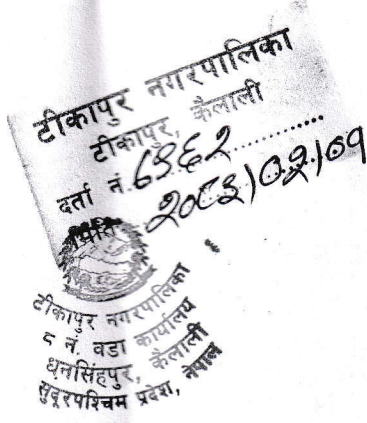 टीकापुर नगरपालिका
टीकापुर, कैलाली
दर्ता नं.
मिति
टीकापुर नगरपालिका
८ नं. वडा कार्यालय
धनसिंहपुर, कैलाली
सुदूरपश्चिम प्रदेश, नेपाल